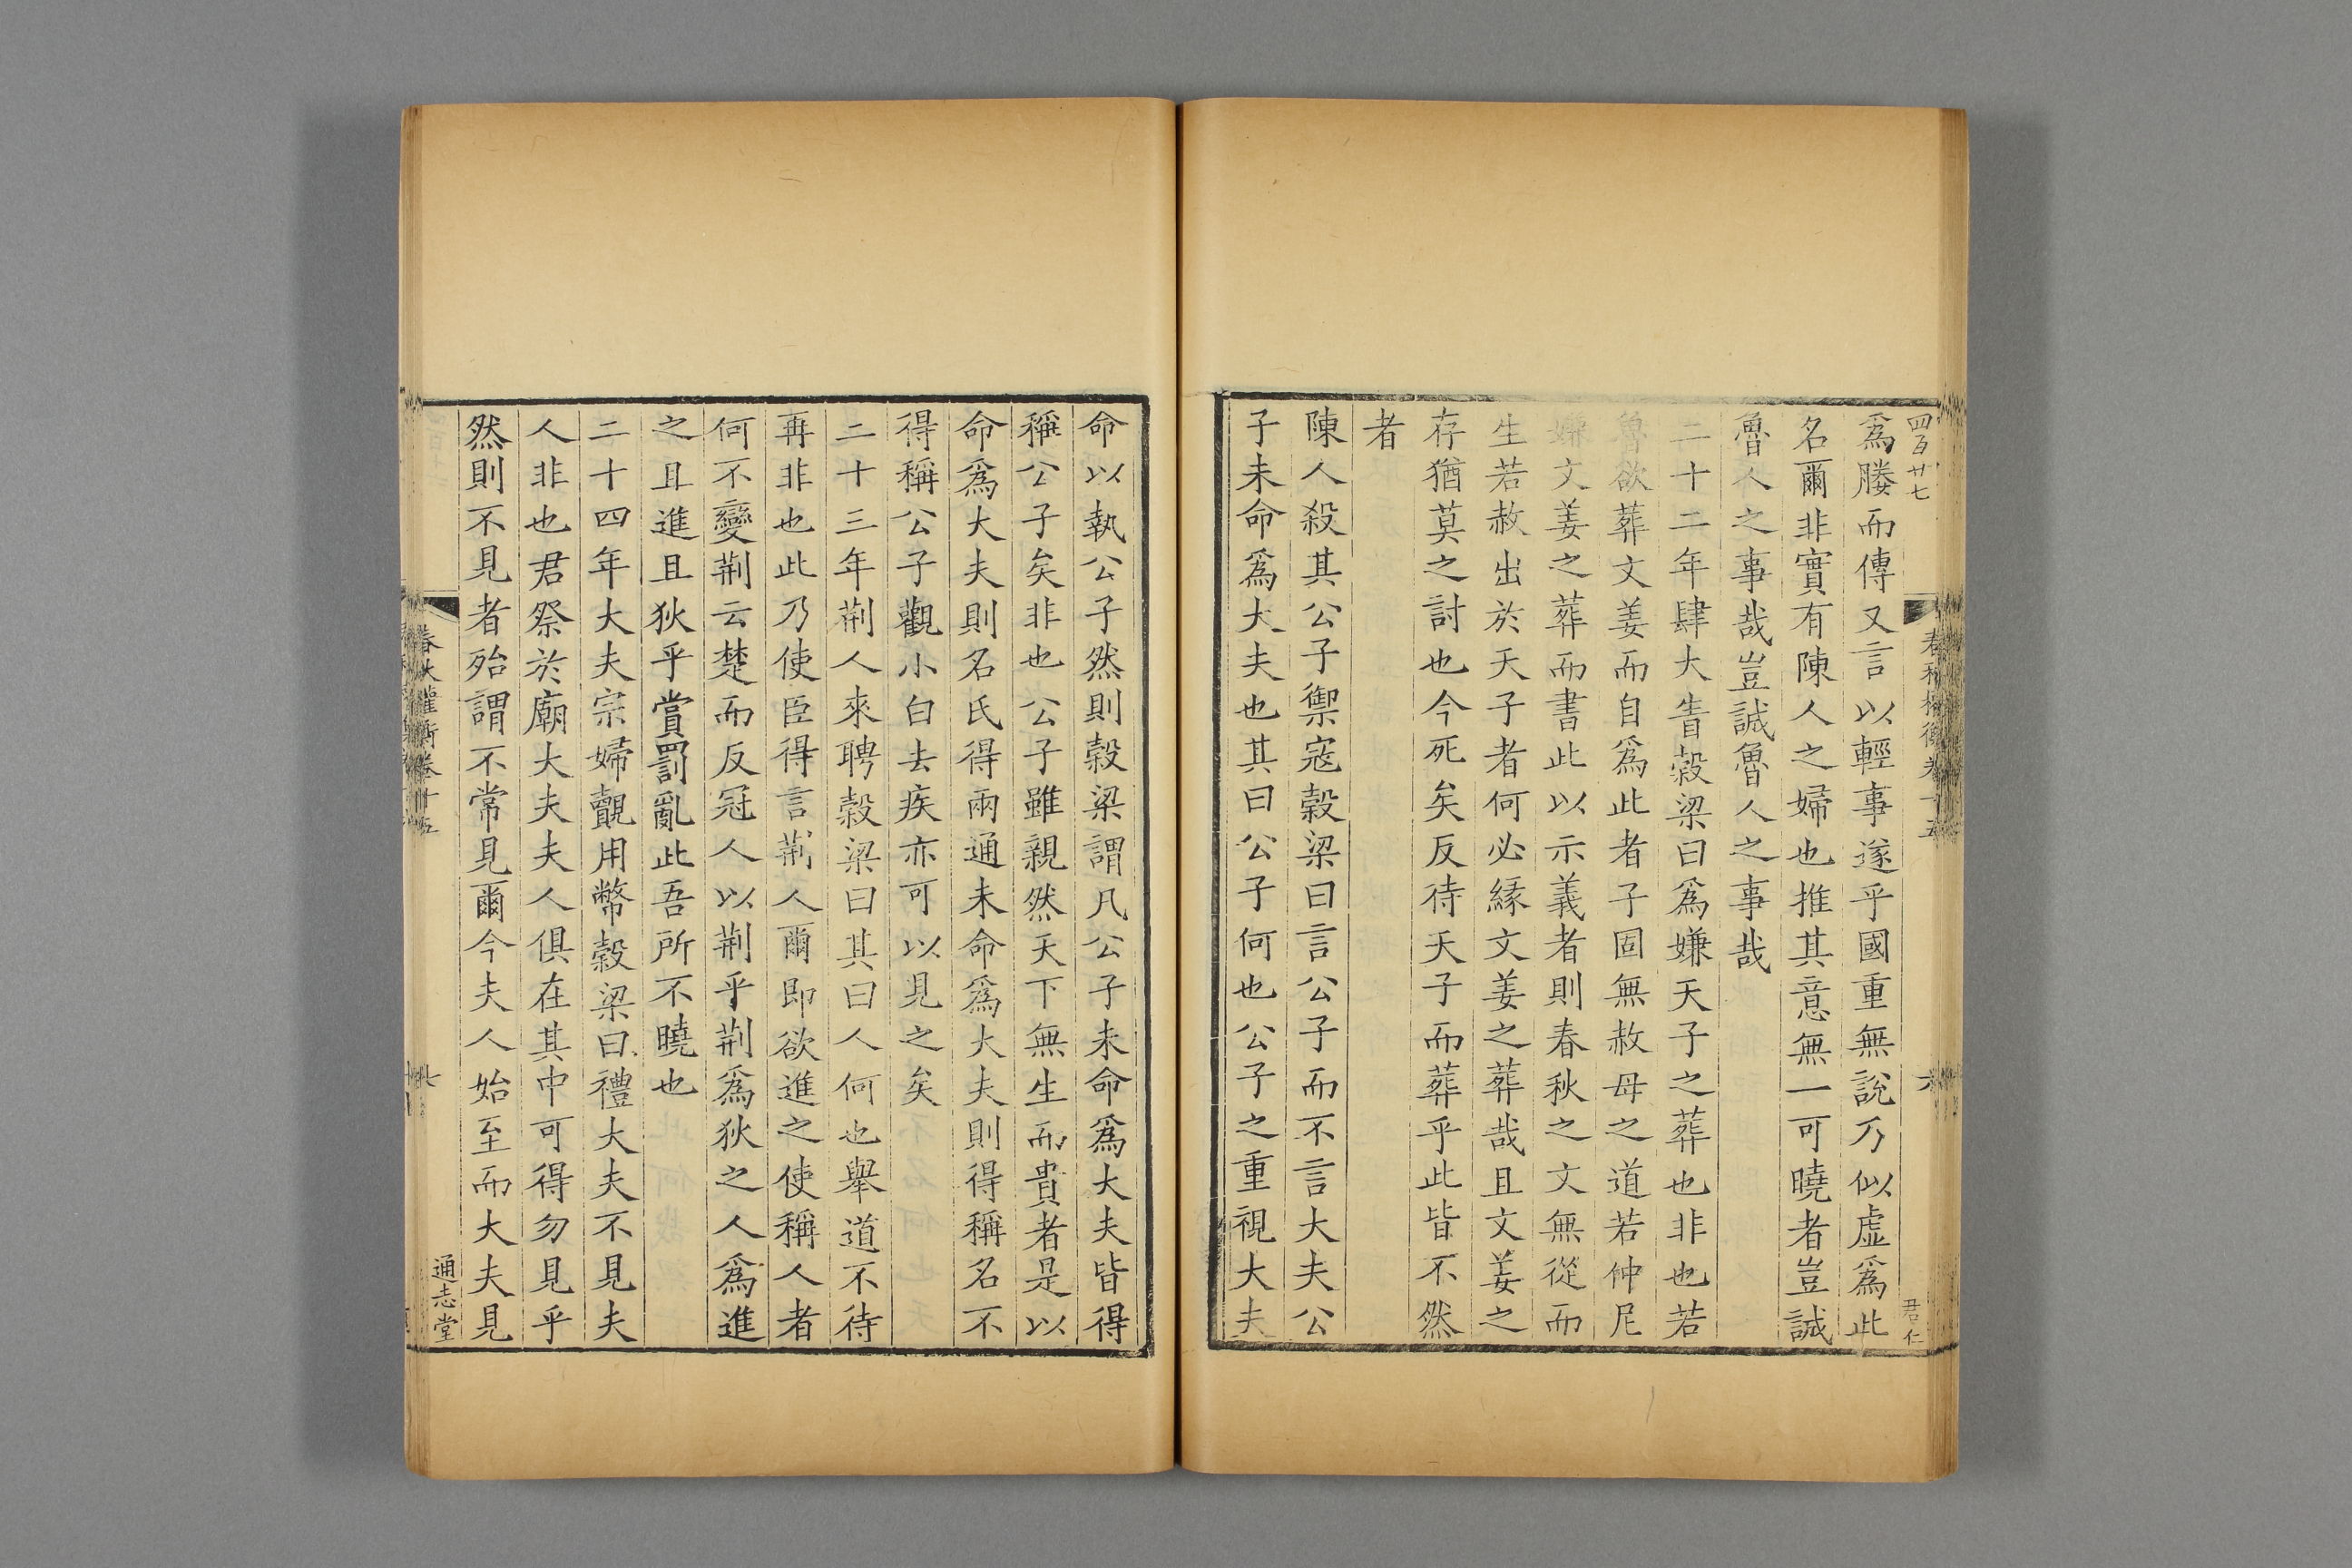 四百廿七
春秋權衡卷十五
六
君仁
爲媵而傳又言以輕事遂乎國重無說乃似虛爲此
名爾非實有陳人之婦也推其意無一可曉者豈誠
魯人之事哉豈誠魯人之事哉
二十二年肆大眚榖梁曰爲嫌天子之葬也非也若
魯欲葬文姜而自爲此者子固無赦母之道若仲尼
嫌文姜之葬而書此以示義者則春秋之文無從而
生若赦出於天子者何必緣文姜之葬哉且文姜之
存猶莫之討也今死矣反待天子而葬乎此皆不然
者
陳人殺其公子禦寇榖梁曰言公子而不言大夫公
子未命爲大夫也其曰公子何也公子之重視大夫
命以執公子然則榖梁謂凡公子未命爲大夫皆得
稱公子矣非也公子雖親然天下無生而貴者是以
命爲大夫則名氏得兩通未命爲大夫則得稱名不
得稱公子觀小白去疾亦可以見之矣
二十三年荆人來聘榖梁曰其曰人何也舉道不待
再非也此乃使臣得言荆人爾即欲進之使稱人者
何不變荆云楚而反冠人以荆乎荆爲狄之人爲進
之且進且狄乎賞罰亂此吾所不曉也
二十四年大夫宗婦覿用幣榖梁曰禮大夫不見夫
人非也君祭於廟大夫夫人俱在其中可得勿見乎
然則不見者殆謂不常見爾今夫人始至而大夫見
春秋權衡卷十五
七
通志堂